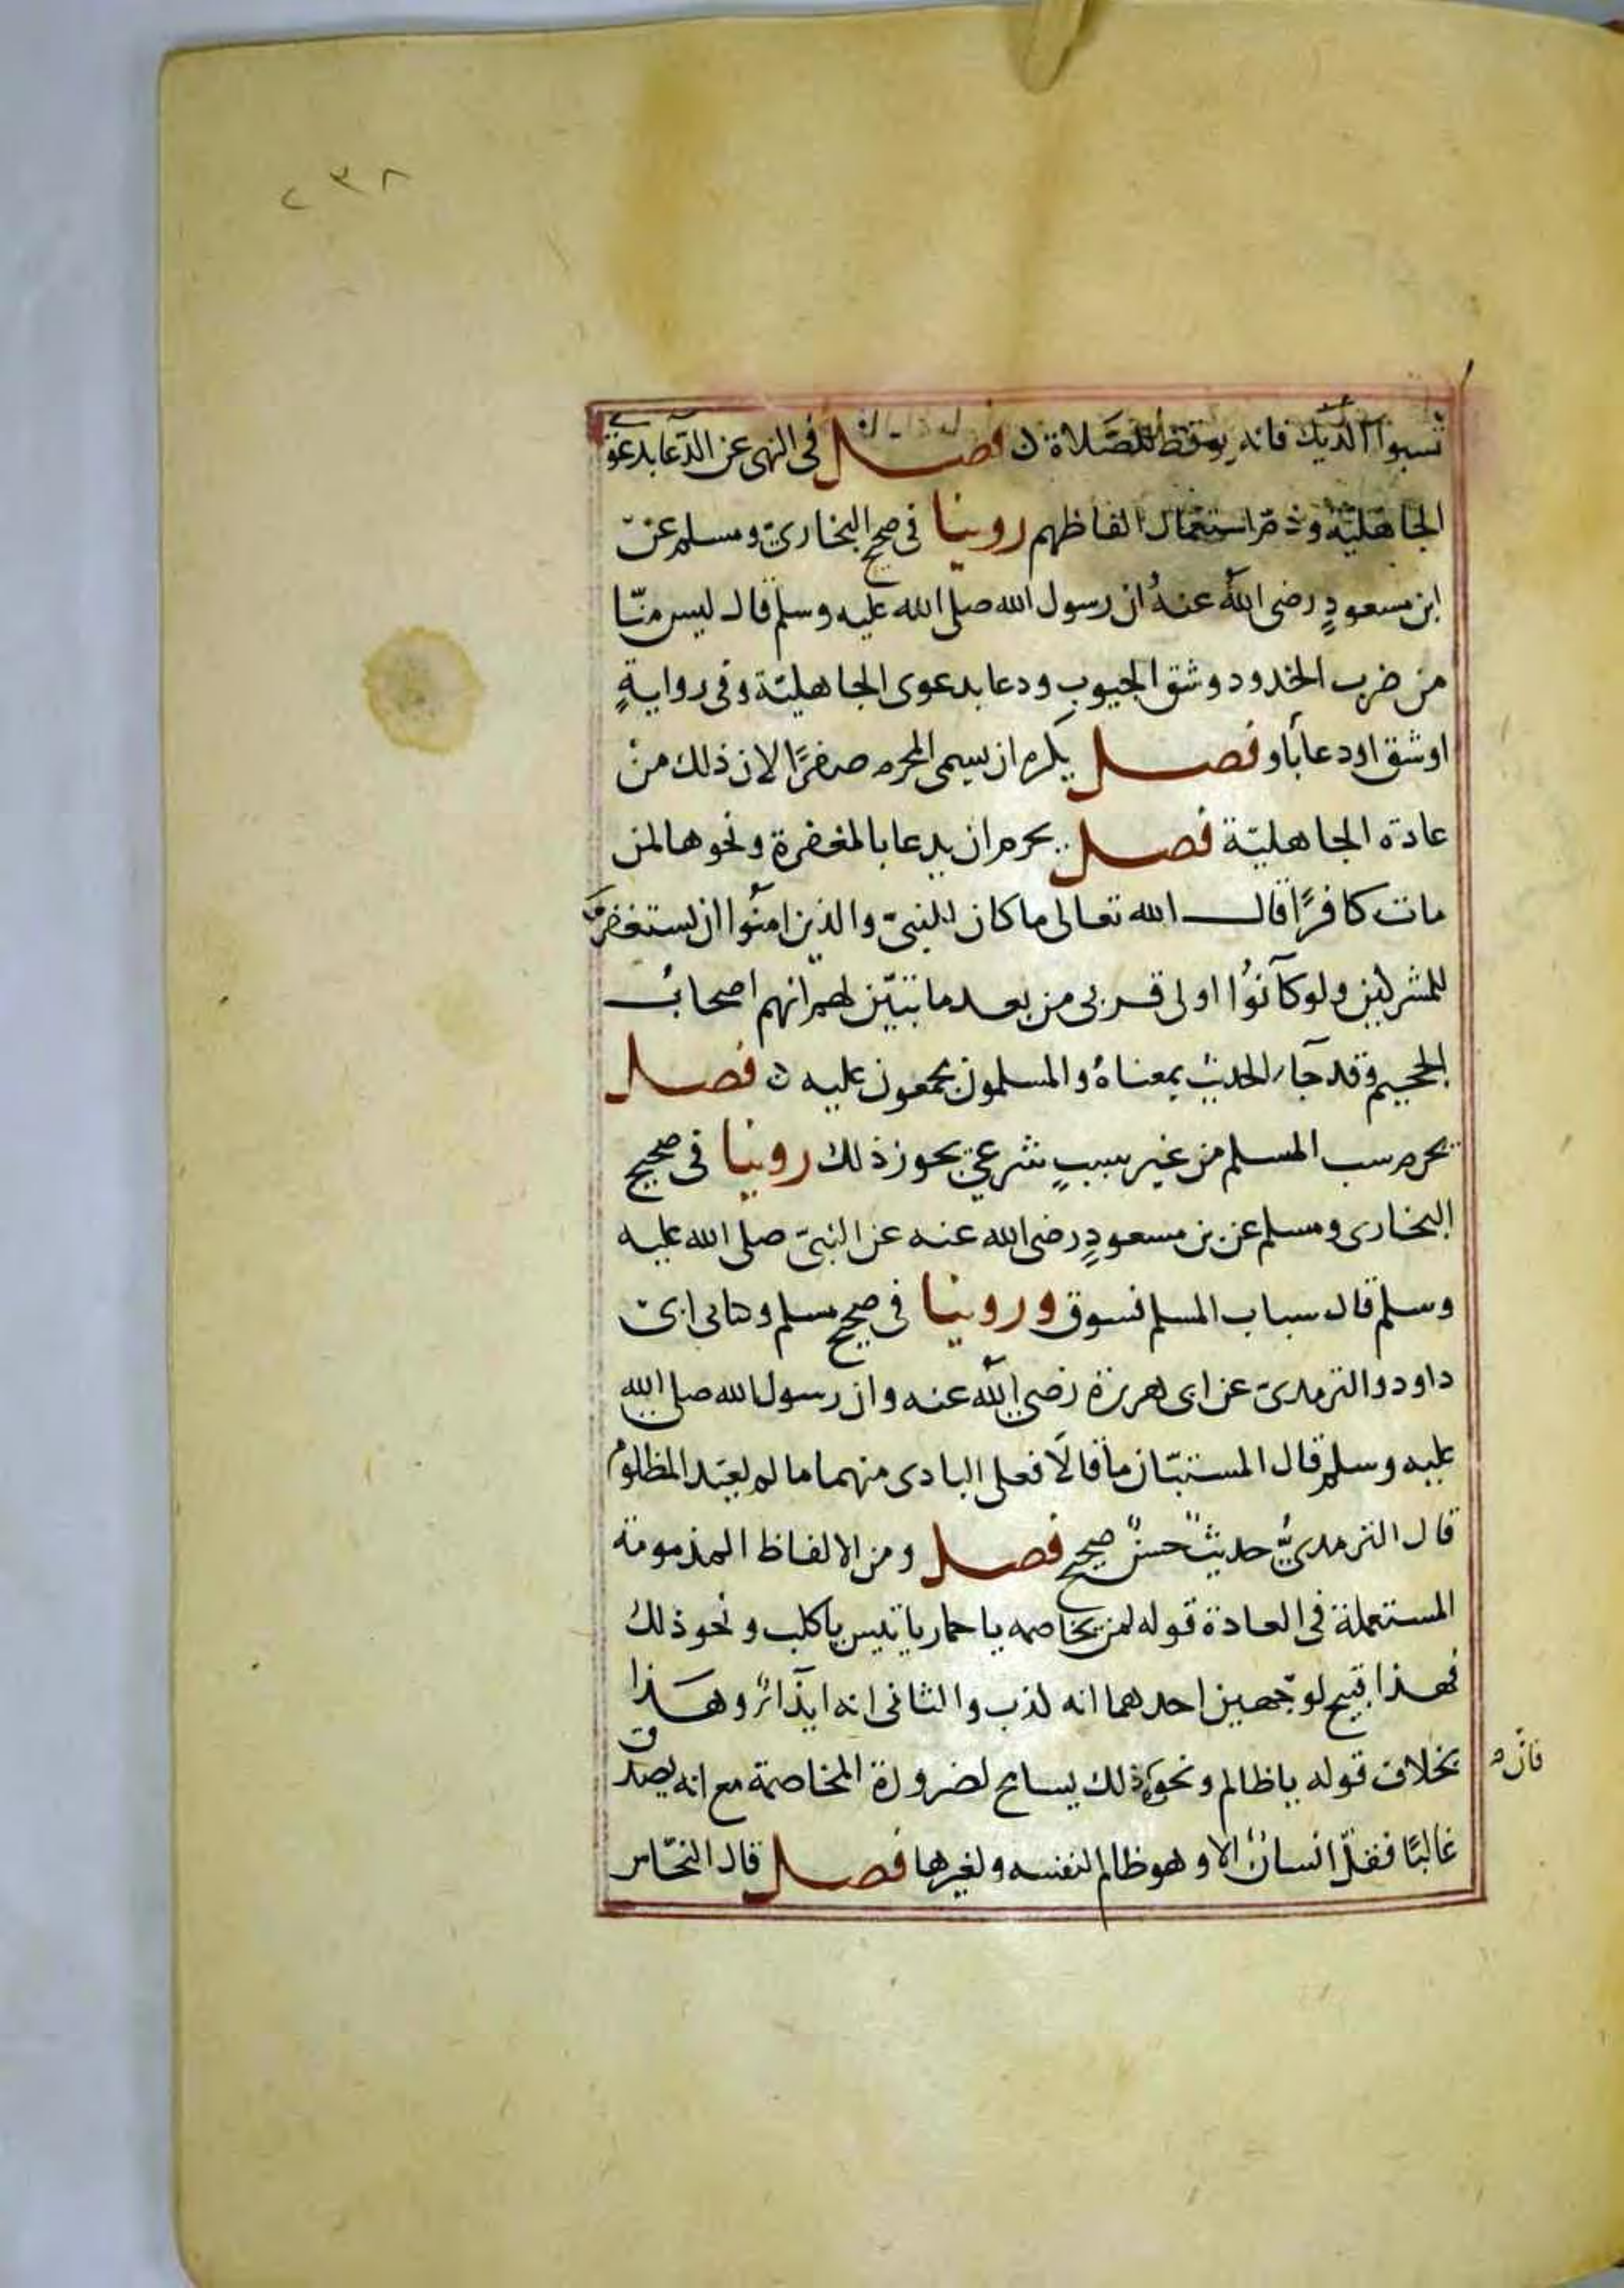 ٢٣٨
تسبوا الديك فانه يوقظ للصلاة ن فصل في النهى عن الدعا بدعوى
الجاهلية وذم استعمال الفاظهم روينا في صحيح البخاري ومسلم عن
ابن مسعودٍ رضى الله عنهُ ان رسول الله صلى الله عليه وسلم قال ليس منّا
من ضرب الخدود وشق الجيوب ودعا بدعوى الجاهليّة وفى روايةٍ
اوشق اودعا بأو فصل يكره ان يسمى المحرم صفرًا لان ذلك من
عادة الجاهليّة فصل يحرم ان يدعا بالمغفرة ونحوها لمن
مات كافرًا قال الله تعالى ماكان للنبيّ والذين امنُوا ان يستغفروا
للمشركين ولوكانُوا اولى قربى من بعد ما تبيّن لهم انهم اصحاب
الجحيم وقد جآء الحديث بمعناهُ والمسلمون مجمعون عليه ن فصل
يحرم سب المسلم من غير سببٍ شرعيّ يجوز ذلك روينا فى صحيح
البخارى ومسلم عن بن مسعودٍ رضى الله عنه عن النبيّ صلى الله عليه
وسلم قال سباب المسلم فسوق وروينا فى صحيح مسلم وكتابى ابى
داود والترمدىّ عن ابى هريرة رضى الله عنه وان رسول الله صلى الله
عليه وسلم قال المستبّان ما قالَا فعلى البادى منهما ما لم يعتد المظلوم
قال الترمدىُّ حديثٌ حسنٌ صحيح فصل ومن الالفاظ المذمومة
المستعملة فى العادة قوله لمن يخاصمه ياحمار ياتيس ياكلب ونحو ذلك
فهذا قبيح لوجهين احدهما انه كذب والثانى انه ايذآءٌ وهذا
بخلاف قوله ياظالم ونحوه ذلك يسامح لضرورة المخاصمة مع انه يصدق
فان
غالبًا فقلّ انسانٌ الا وهوظالم لنفسه ولغيرها فصل قال النحّاس